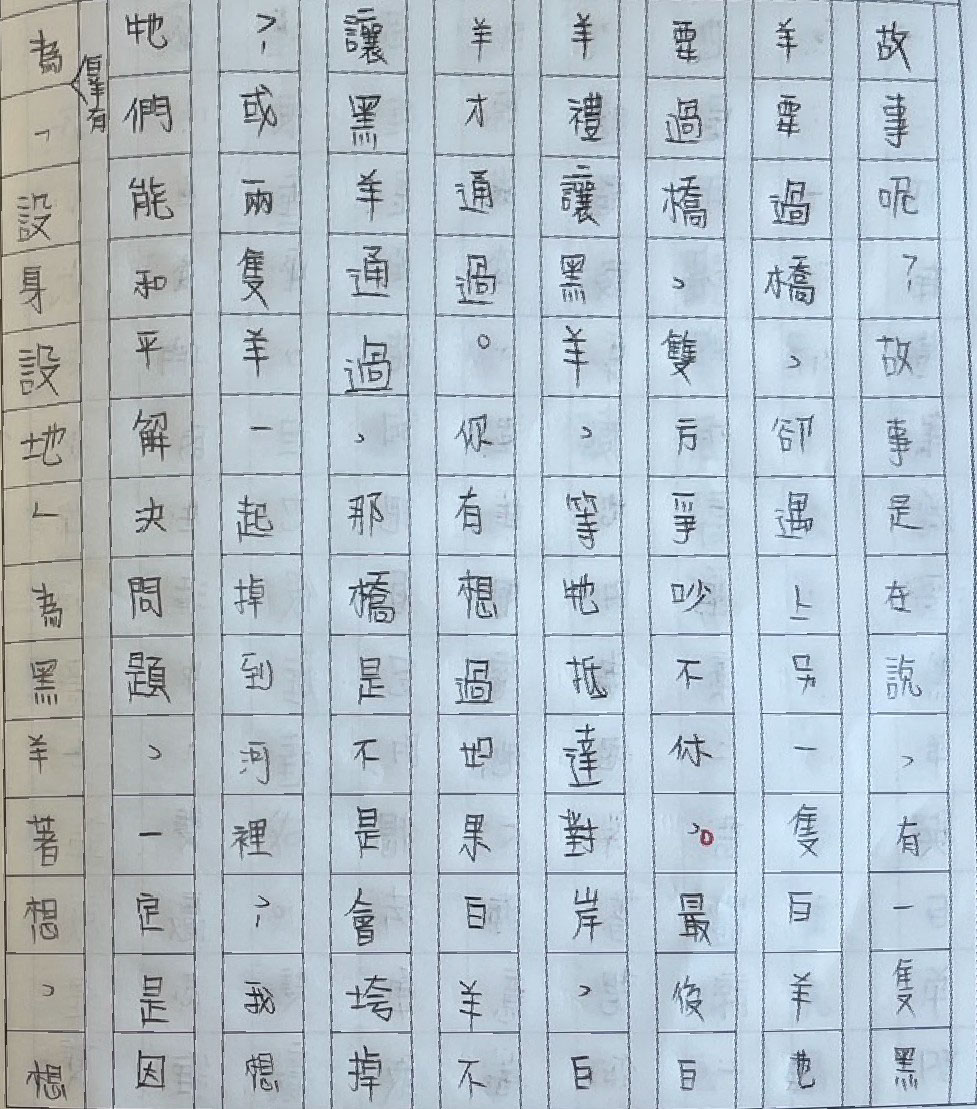 故事呢?故事是在說,有一隻黑
羊要過橋,卻遇上另一隻白羊也
要過橋,雙方爭吵不休。最後白
羊禮讓黑羊,等牠抵達對岸,白
羊才通過。你有想過如果白羊不
讓黑羊通過,那橋是不是會垮掉
?或兩隻羊一起掉到河裡?我想
牠們能和平解決問題,一定是因
為白羊有「設身設地」為黑羊著想,想